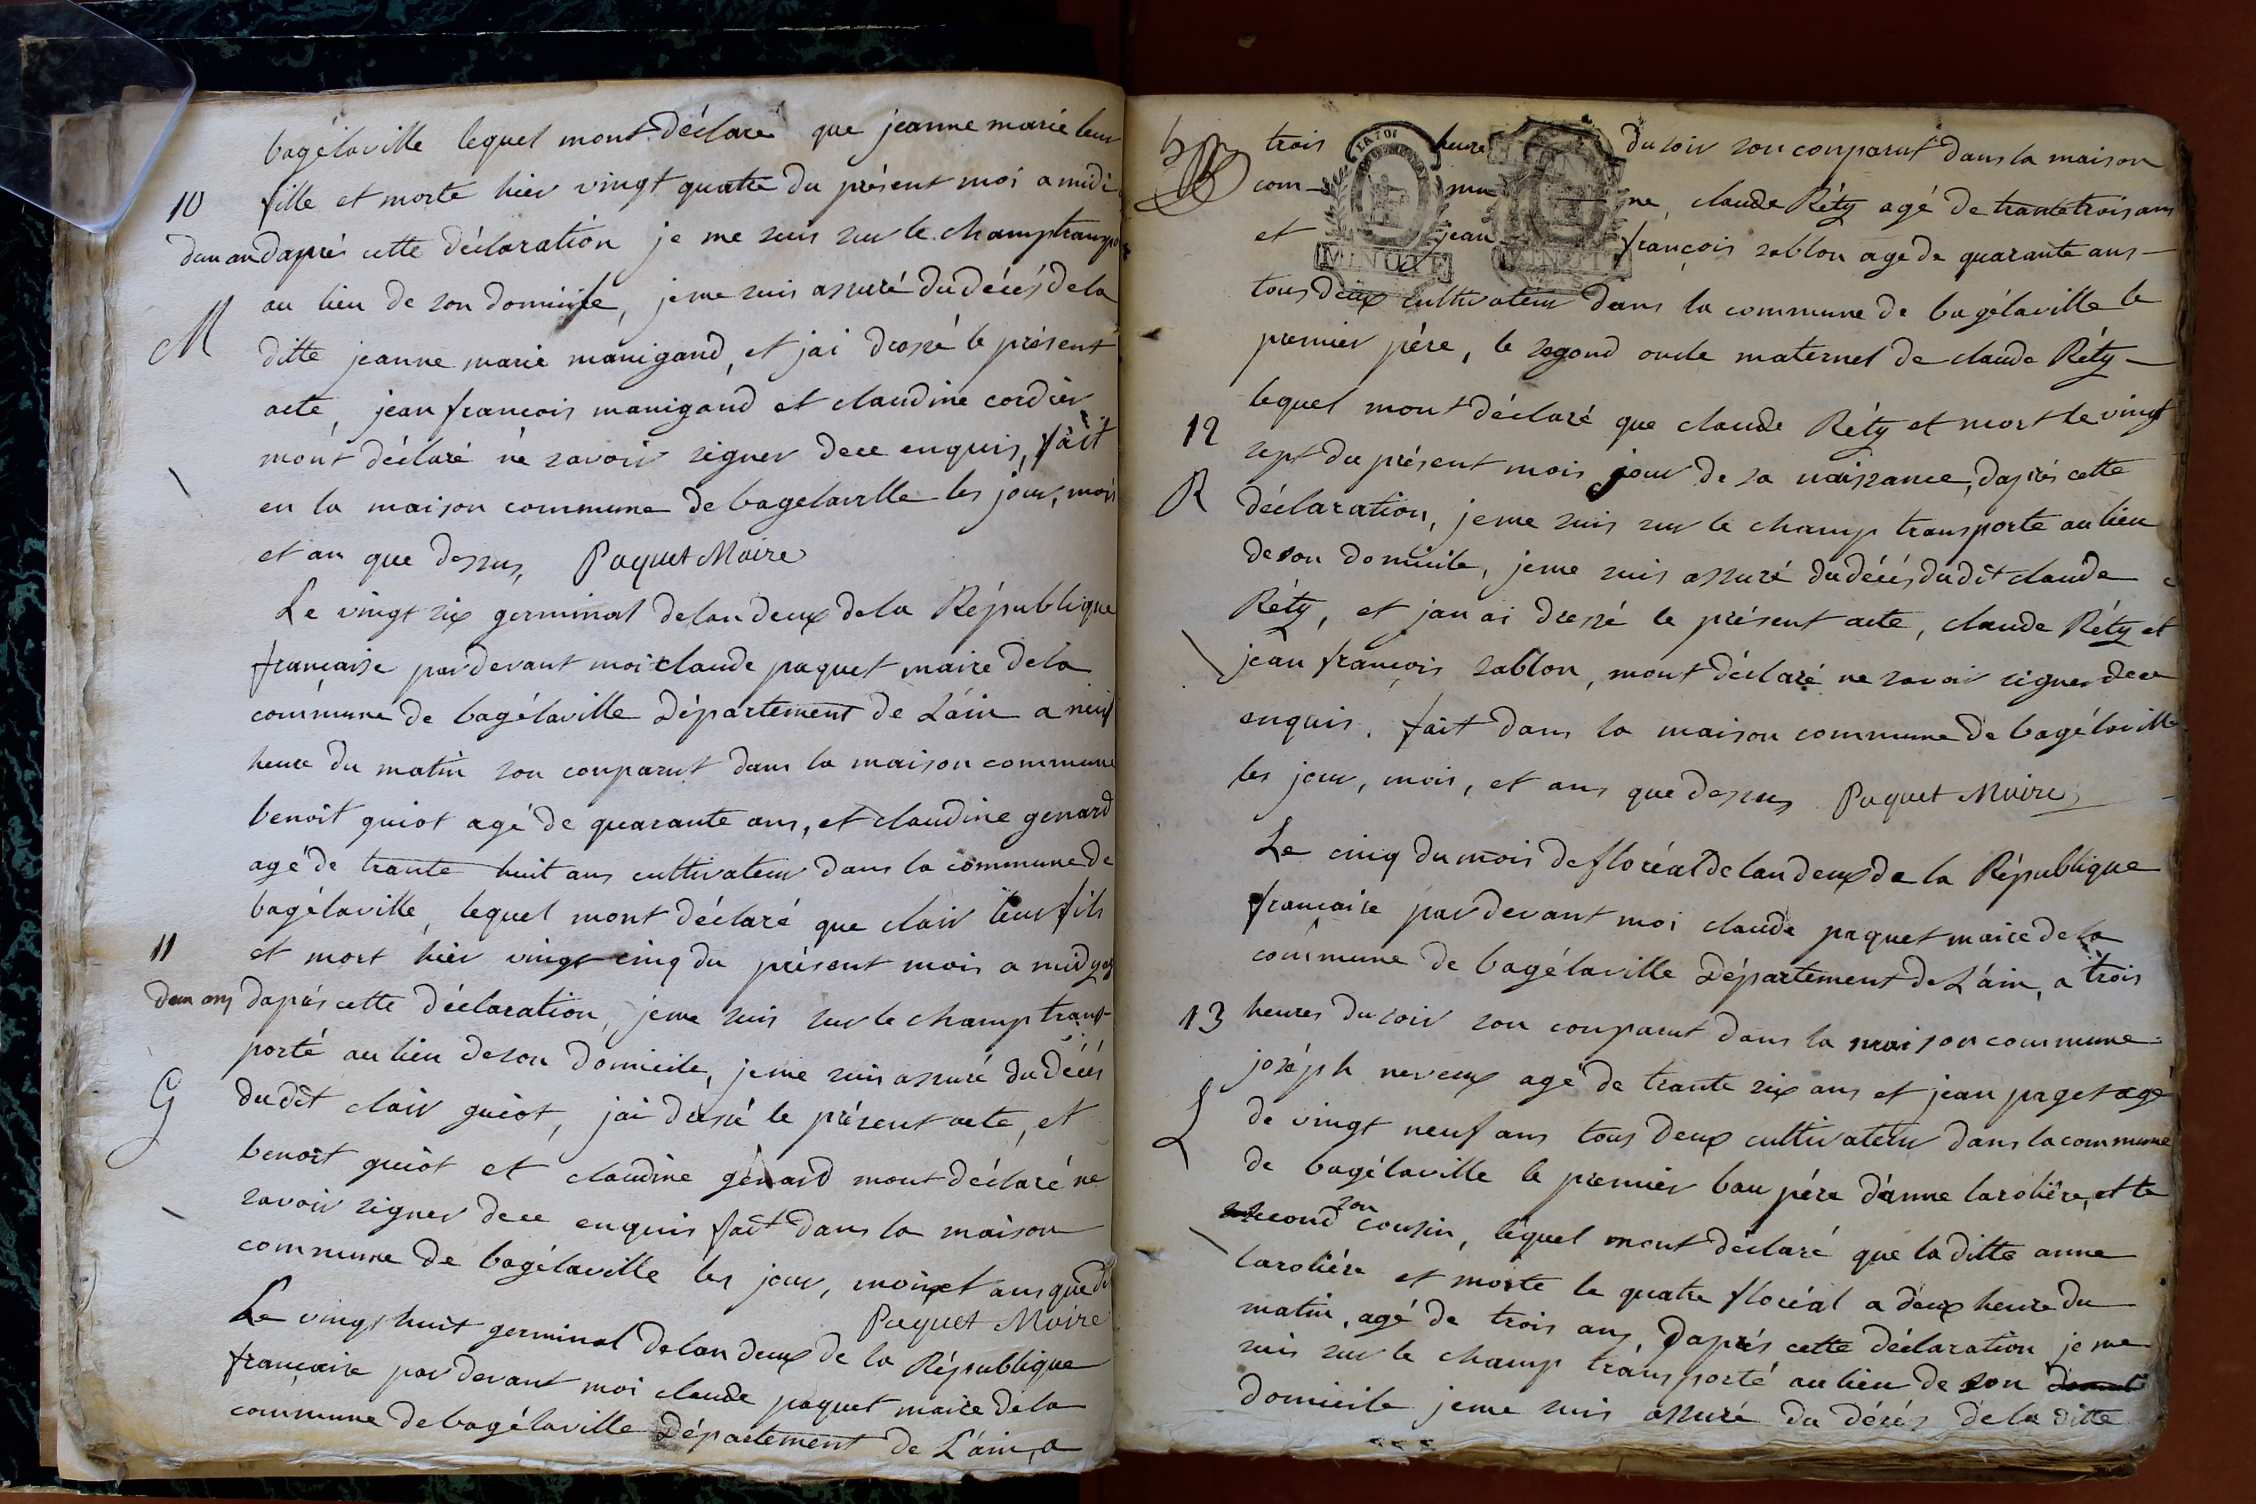 bagélaville lequel mont déclaré que jeanne marie leur
10
fille et morte hier vingt quatre du présent moi a midi
dun an
daprés cette déclaration je me suis sur le champ transpo
au lieu de son domicile, jeme suis assuré du décés de la
M
ditte jeanne marie manigand, et jai dressé le présent
acte, jean francois manigand et claudine cordier
mont déclaré né savoir signer dece enquis, fait
en la maison commune de bagelaville les jour, mois
et an que dessus, Paquet Maire
Le vingt six germinal delan deux dela République
francaise pardevant moi claude paquet maire dela
commune de bagélaville Département de Láin a neuf
heure du matin son conparut dans la maison commune
benoit guiot agé de quarante ans, et claudine genard
agé de trante huit ans cultivateur dans la commune de
bagélaville, lequel mont déclaré que clair leur fils
11
et mort hier vingt cinq du présent mois a midy
deux ans
daprés cette déclaration, jeme suis sur le champ trans-
porté au lieu deson domicile, jeme suis assuré du décés
G
dudit clair guiot, jai dressé le présent acte, et
benoit guiot et claudine génard mont déclaré ne
savoir signer dece enquis fait dans la maison
commune de bagélaville les jour, mois et ans que de
Paquet Maire
Le vingt huit germinal delan deux de la République
française par devant moi claude paquet maire dela
commune debagélaville Département de Láin, a
trois heure du soir son conparut dans la maison
com- mu ne, claude Réty agé de trante trois ans
et jean françois sablon agé de quarante ans-
LA LOI
MINUTE
MINUTE
tous deux cultivateur dans la commune de bagélaville le
premier pére, le segond oncle maternel de claude Réty-
lequel mont déclaré que claude Réty et mort le vingt
12
sept du présent mois jour de sa naissance, daprés cette
R
déclaration, jeme suis sur le champ transporte au lieu
deson domicile, jeme suis assuré du décés dudit claude
Réty, et jan ai dressé le présent acte, claude Réty et
jean françois sablon, mont déclaré ne savoir signer dece
enquis. fait dans la maison commune de bagélaville
les jour, mois, et ans que dessus Paquet Maire
Le cinq du mois de floréal de lan deux de la République
francaise par devant moi claude paquet maire de la
commune de bagélaville Département de Láin, a trois
13
heures du soir son conparut dans la maison commune
joséph neveux agé de trante six ans et jean paget agé
de vingt neuf ans tous deux cultivateur dans la commune
L
de bagélaville le premier bau pére dánne larolière, et le
second son cousin, lequel mont déclaré que la ditte anne
laroliére et morte le quatre floréal a deux heure du
matin, agé de trois ans, daprés cette déclaration je me
suis sur le champ transporté au lieu de son
domicile jeme suis assuré du décés dela ditte